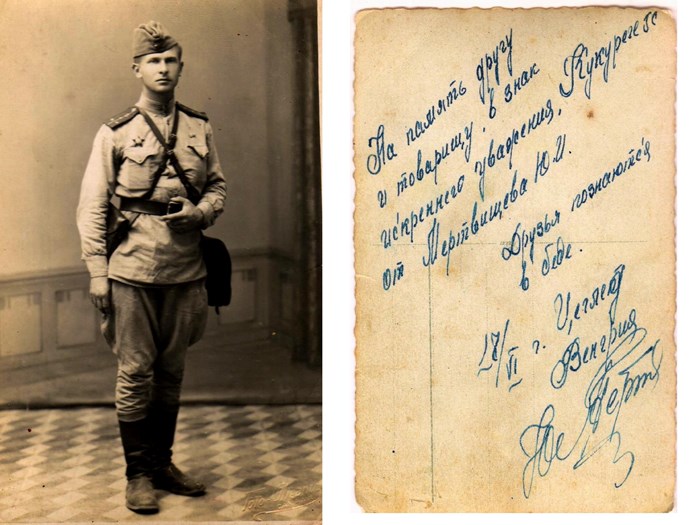 На память другу
и товарищу, в знак
искреннего уважения,
от Мертвищева Ю.И.
Друзья познаются
в беде.
г. Цеглед
Венгрия